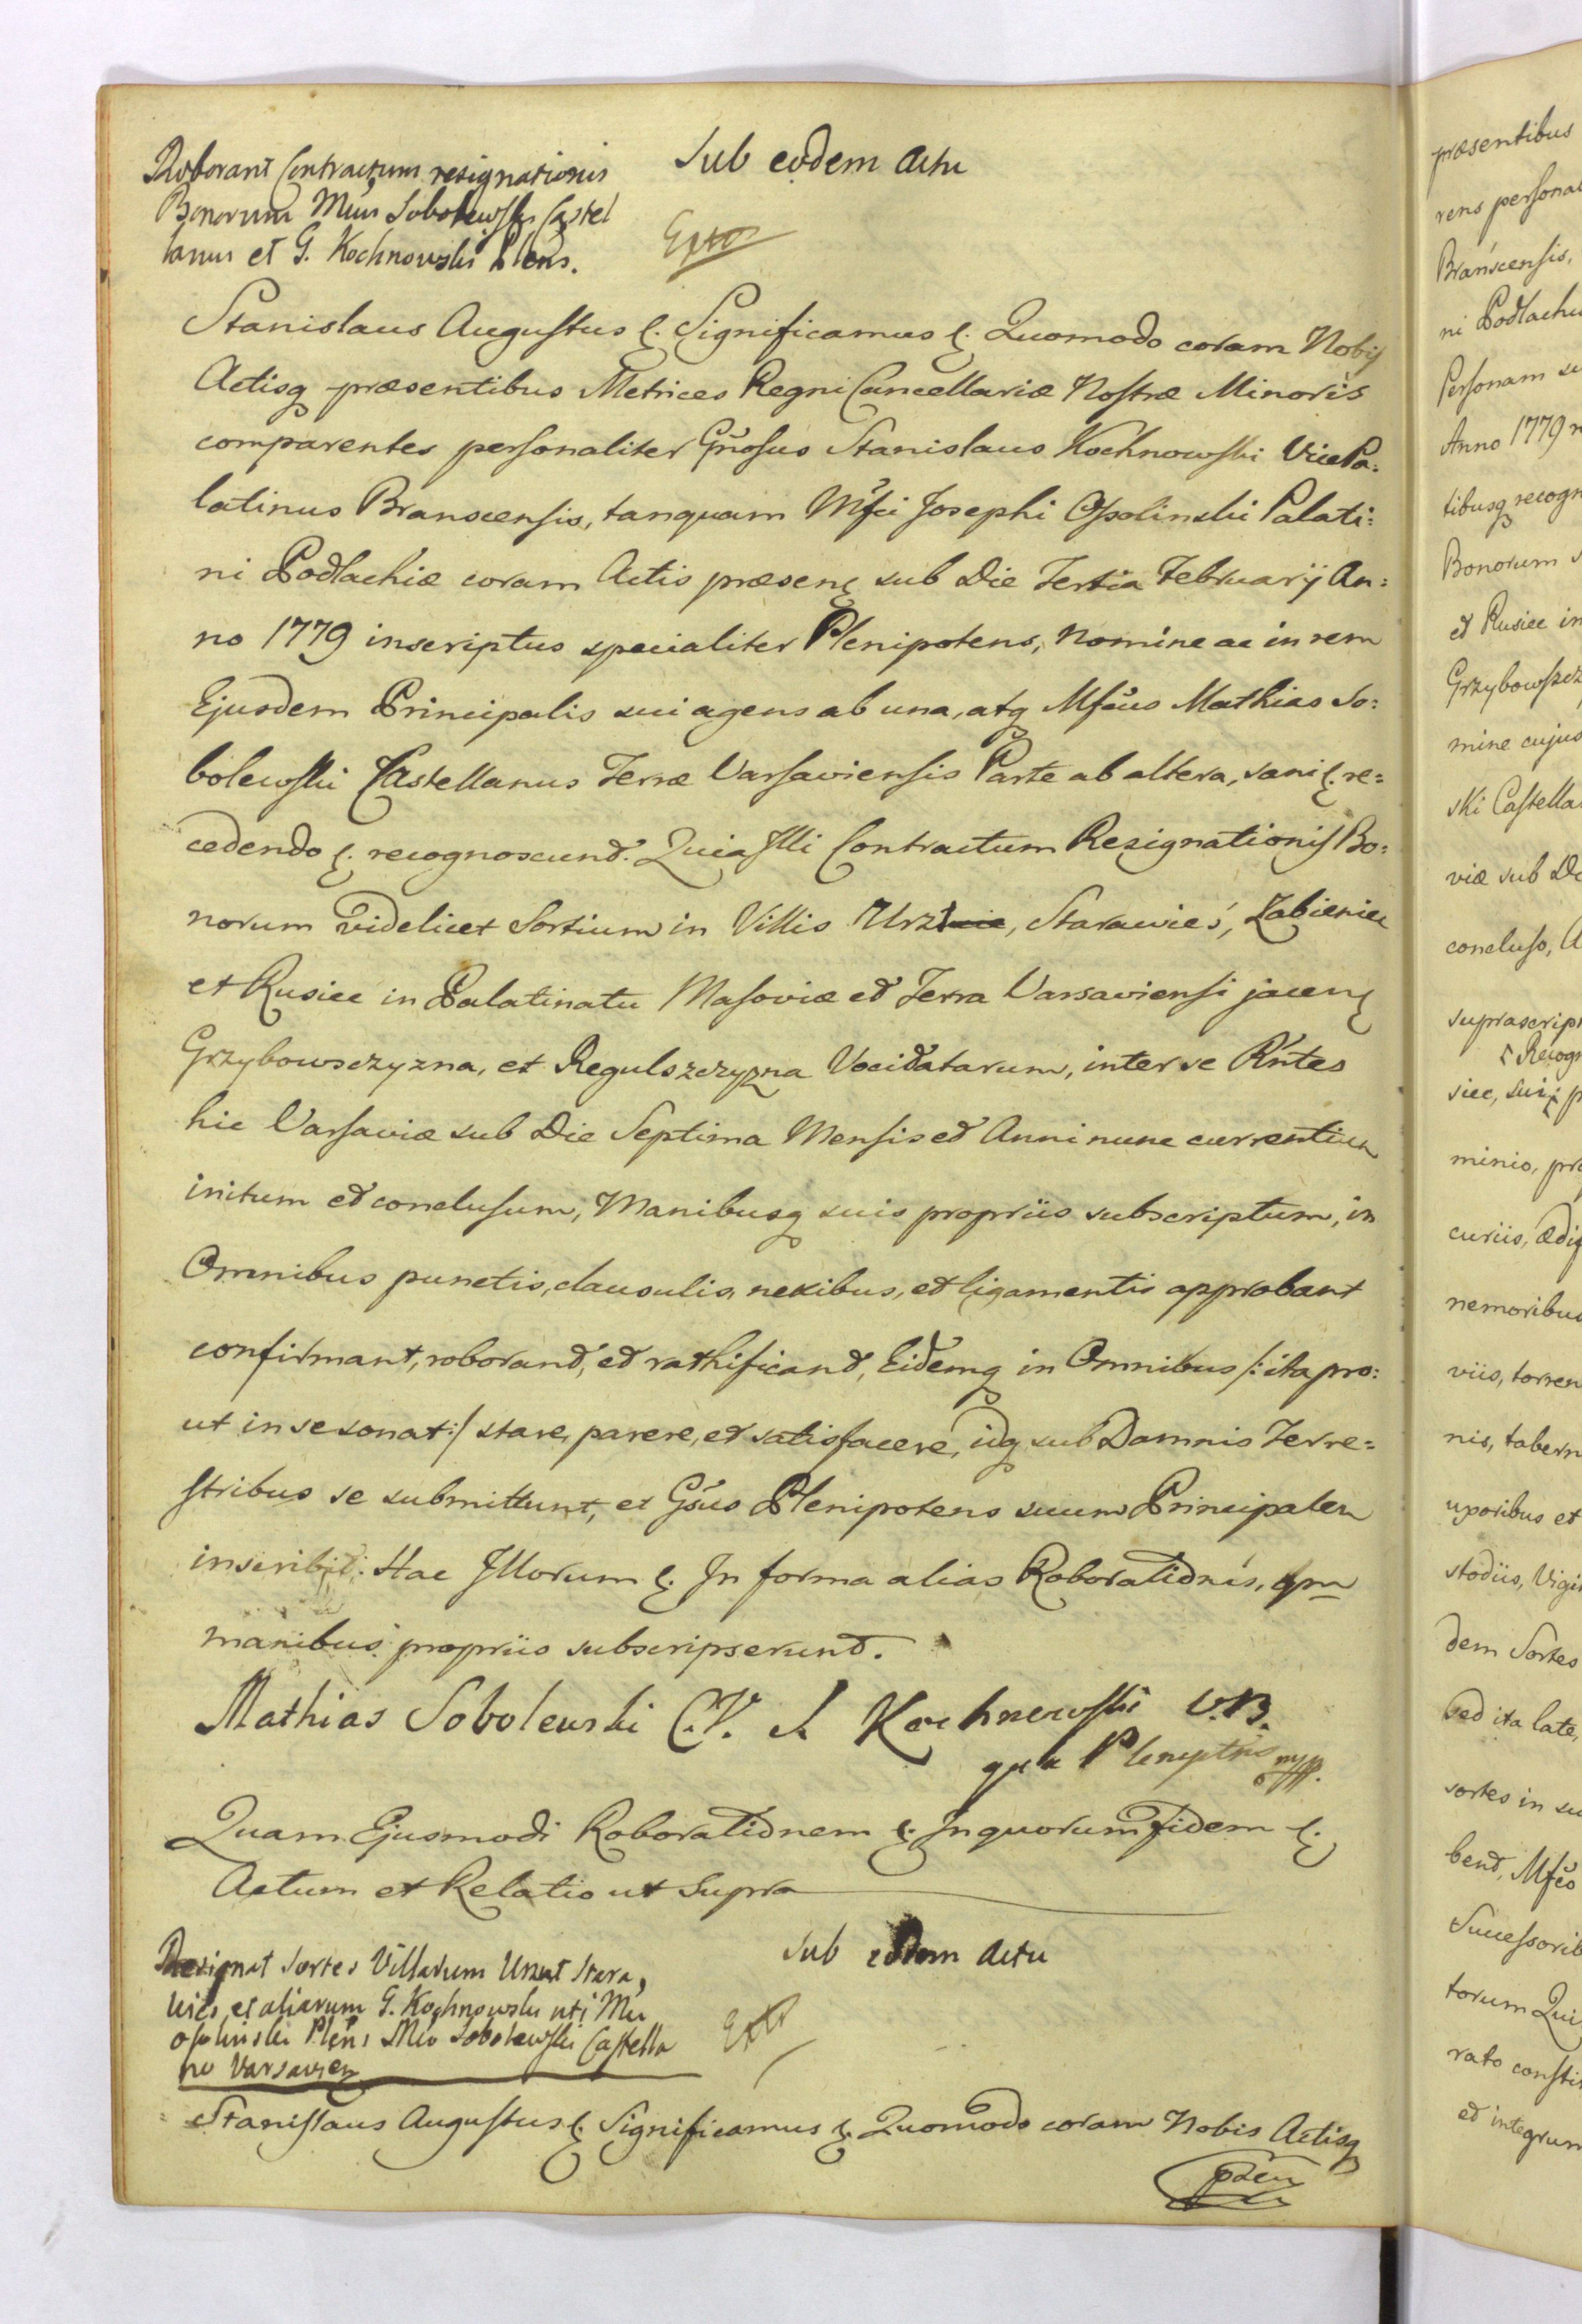 Roborant Contractum resignationis
Bonorum Mcus Sobolewski Castel
lanus et G. Kochnowski Plens.
Sub eodem Actu
Extr
Stanislaus Augustus &. Significamus &. Quomodo coram Nobis
Actisq præsentibus Metrices Regni Cancellariæ Nostræ Minoris
comparentes personaliter Gnosus Stanislaus Kochnowski Vice Pa:
latinus Branscensis, tanquam Mfci Josephi Ossolinski Palati:
ni Podlachiæ coram Actis præsen& sub Die Tertia Februarij An:
no 1779 inscriptus specialiter Plenipotens, Nomine ac in rem
Ejusdem Principalis sui agens ab una, atq Mfcus Mathias So:
bolewski Castellanus Terræ Varsaviensis Parte ab altera, sani &. re=
cedendo &. recognoscund. Quia Illi Contractum Resignationis Bo:
norum videlicet Sortium in Villis Urzut, Starawieś, Żabieniec
et Rusiec in Palatinatu Masoviæ et Terra Varsaviensi jacen&
Grzybowsczyzna, et Regulszczyzna Vocitatarum, inter se Rńtes
hic Varsaviæ sub Die Septima Mensis et Anni nunc currentium
initum et conclusum, Manibusq suis propriis subscriptum, in
Omnibus punctis, clausulis, nexibus, et ligamentis approbant
confirmant, roborand, et rathificand, Eidemq in Omnibus /: ita pro:
ut in se sonat :/ stare, parere, et satisfacere, idq sub Damnis Terre=
stribus se submittunt, et Gsus Plenipotens suum Principalem
inscribit. Hac Illorum &. In forma alias Roborationis, qm
manibus propriis subscripserund.
Mathias Sobolewski C.V. S. Kochnowski V.B.
qua Pleniptns mpp.
Quam Ejusmodi Roborationem &. In quorum fidem &.
Actum et Relatio ut Supra
Sub eodem Actu
Resignat Sortes Villarum Urzut Stara,
wieś, et aliarum G. Kochnowski uti Mci
Ossolinski Plens Mco Sobolewski Castella
no Varsavien&
Extr
Stanislaus Augustus &. Significamus &. Quomodo coram Nobis Actisq
præsentibus
rens personal
Brańscensis,
ni Podlachi
Personam su
Anno 1779 n
tibusq recogn
Bonorum s
et Rusiec in
Grzybowszcz
mine cujus
ski Castella
viæ sub Di
concluso, A
suprascrip
Recogn
siec, sui
minio, pro
curiis, ædif
nemoribus
viis, torren
nis, tabern
uxoribus et
stodiis, Vigi
dem Sortes
sed ita late,
sortes in su
bend, Mfco
Successorib
torum Qui
rato consti
et integrum